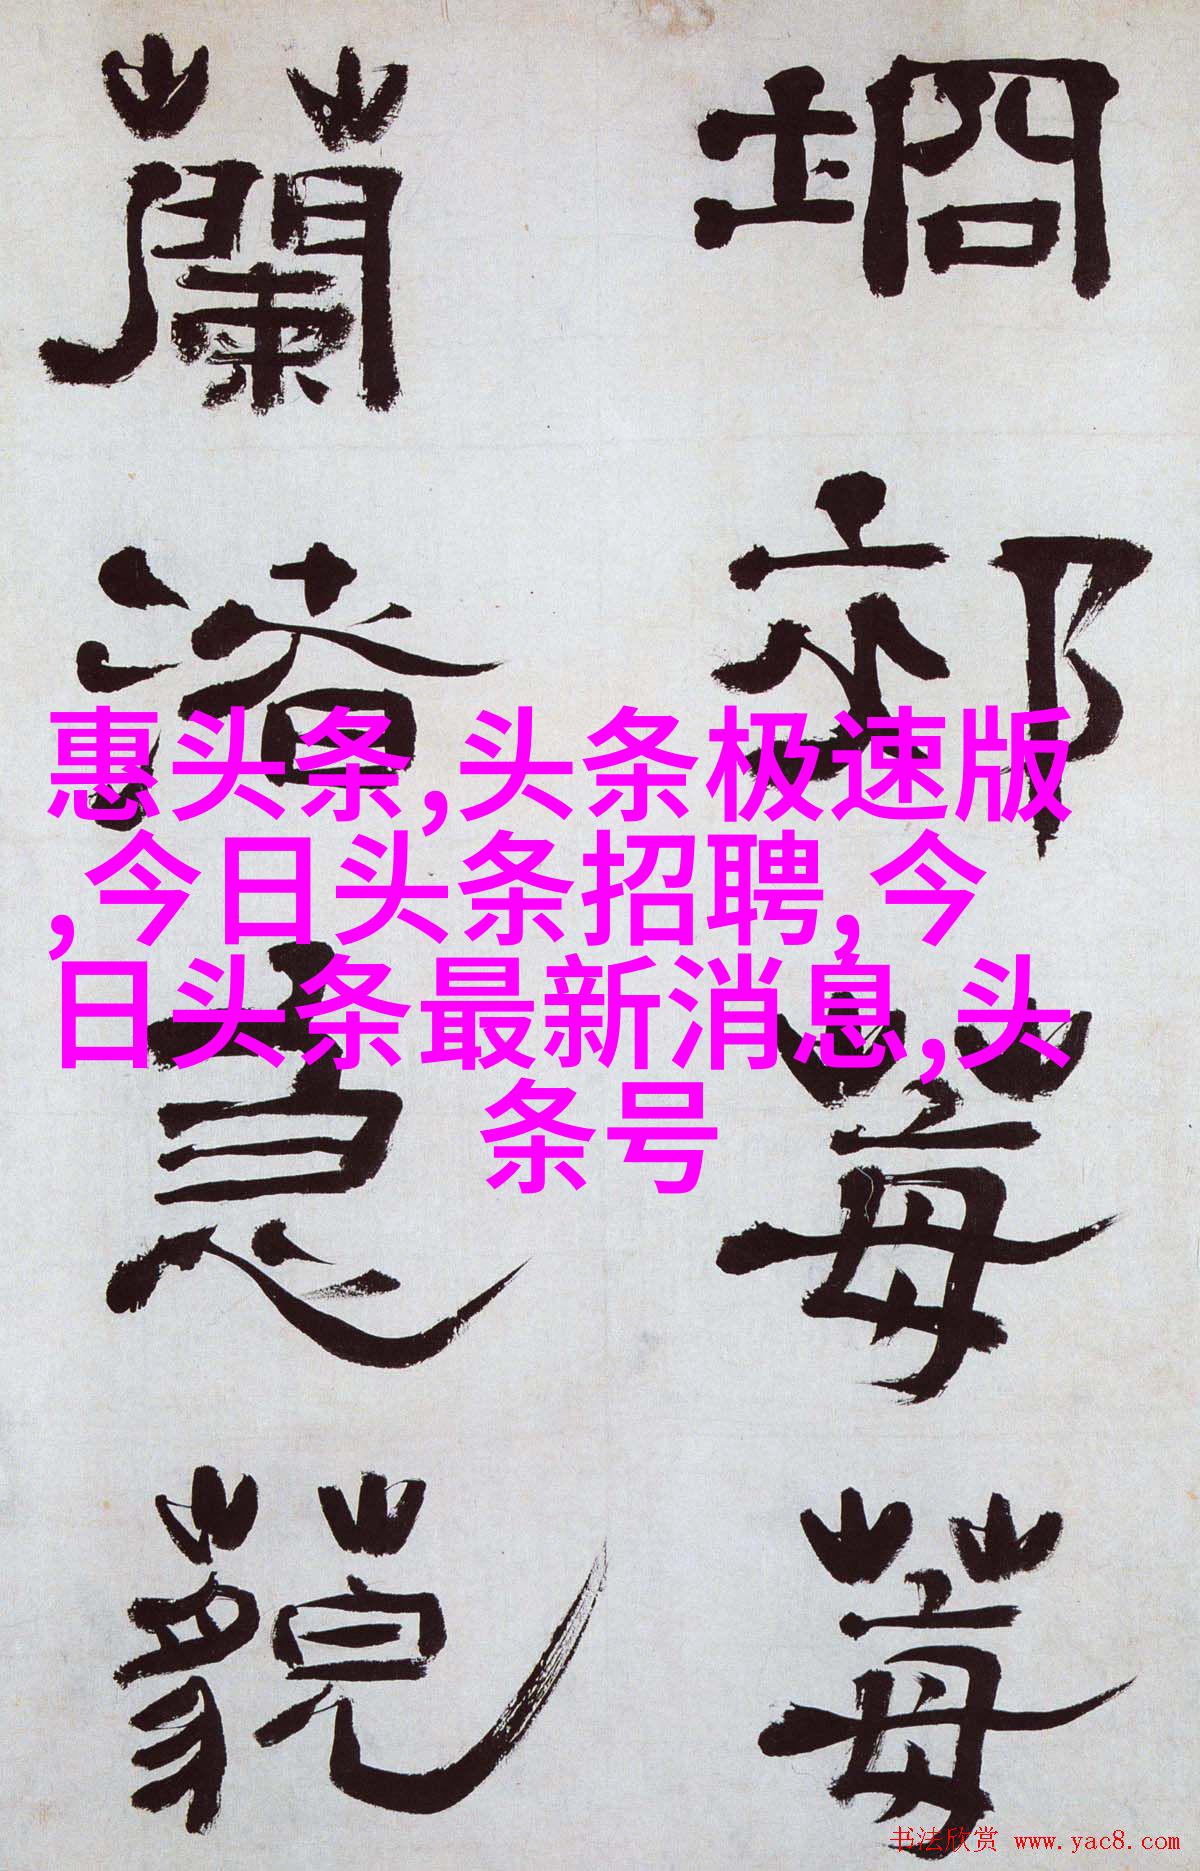 莓莓
蘭渚
藐
惠头条,头条极速版
,今日头条招聘,今
日头条最新消息,头
条号
书法欣赏 www.yac8.com